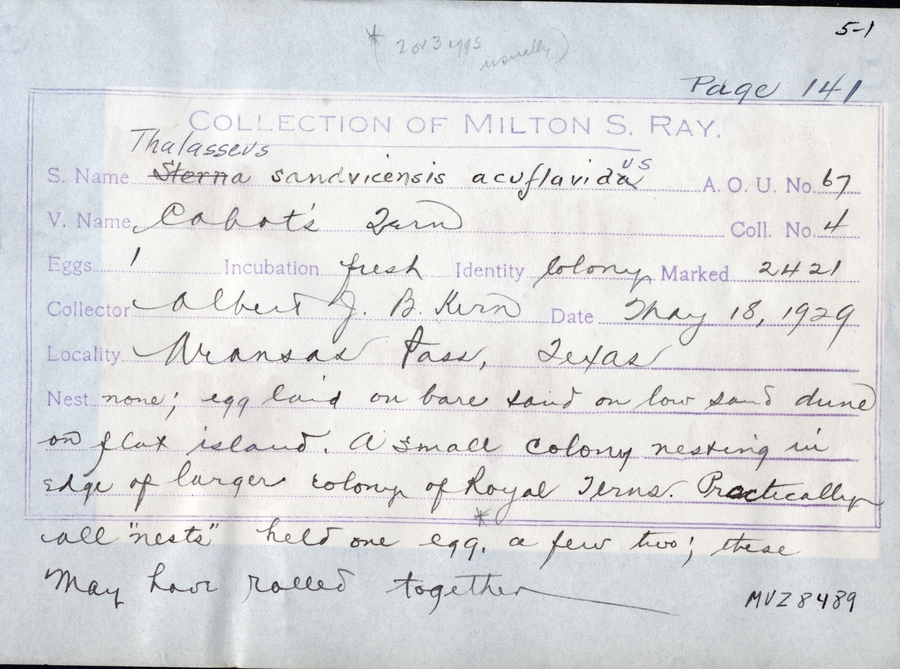 5-1
* (2 or 3 eggs usually)
Page 141
COLLECTION OF MILTON S. RAY.
Thalasseus
S. Name Sterna sandvicensis acuflavidaus A. O. U. No. 67
V. Name Cabot's Tern Coll. No. 4
Eggs 1 Incubation fresh Identity Colony Marked 2421
Collector Albert J. B. Kirn Date May 18, 1929
Locality Aransas Pass, Texas
Nest none; egg laid on bare sand on low sand dune
on flat island. A small colony nesting in
edge of larger colony of Royal Terns. Practically
all "nests" * held one egg, a few two; these
May have rolled together
MVZ 8489